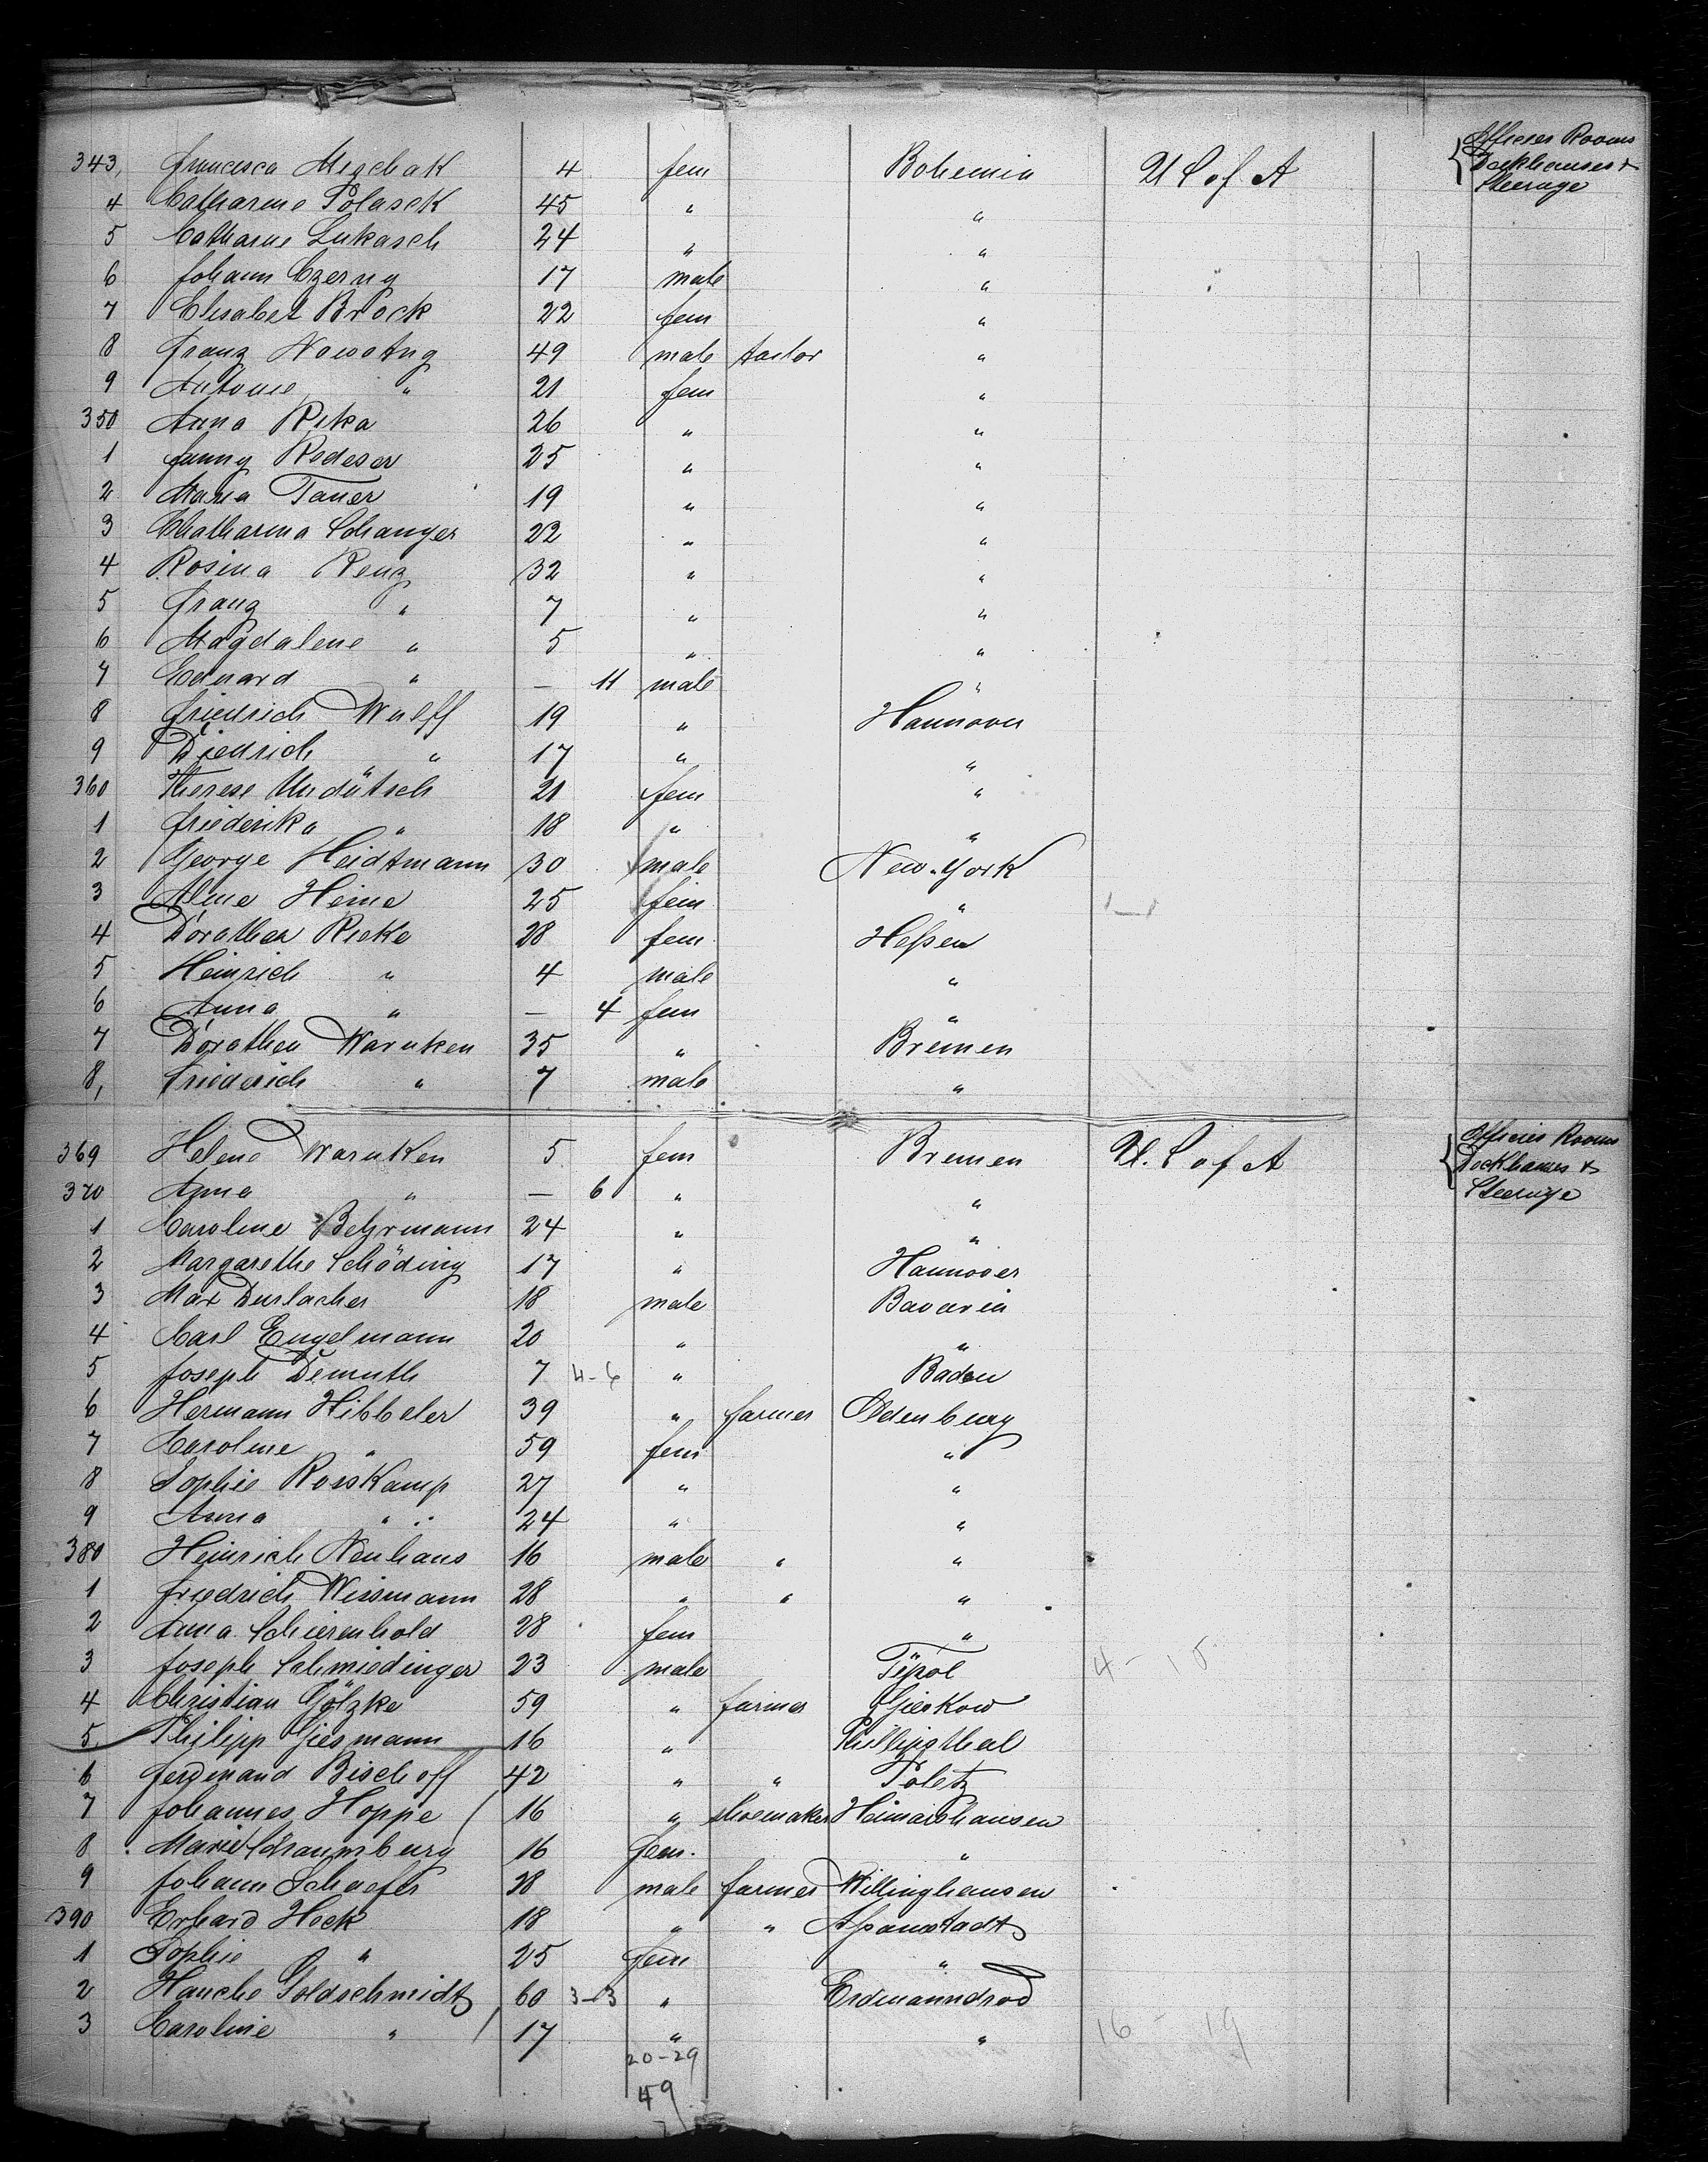 Officers Rooms
343, Francisca Mischak 4 fem Bohemia U S of A Deckhouses &
Steerage
4 Catharine Polasek 45 " "
5 Catharine Lukasch 24 " "
6 Johann Czerny 17 male "
7 Elisabet Brock 22 fem "
8 Franz Nowotny 49 male tailor "
9 Antonie " 21 fem "
350 Anna Reka 26 " "
1 Fanny Redeser 25 " "
2 Maria Tauer 19 " "
3 Chatharina Schanger 22 " "
4 Rosina Renz 32 " "
5 Franz " 7 " "
6 Magdalene " 5 " "
7 Eduard " — 11 male "
8 Friedrich Wulff 19 " Hannover
9 Diedrich " 17 " "
360 Therese 21 fem "
1 Friederika " 18 " "
2 George Heidtmann 30 male New-York
3 Heine 25 fem "
4 Dorothea Rieke 28 fem Heßen
5 Heinrich " 4 male "
6 Anna " — 4 fem "
7 Dorothea Warnken 35 " Bremen
8, Friederich " 7 male "
Officers Rooms
369 Helene Warnken 5 fem Bremen U. S of A Deckhouses &
Steerage
370 Anna " — 6 " "
1 Caroline Behrmann 24 " "
2 Margarethe Schöding 17 " Hannover
3 Max Durlacher 18 male Bavaria
4 Carl Engelmann 20 " "
5 Joseph Demuth 7 4-6 " Baden
6 Hermann Hibbeler 39 " farmer Oldenburg
7 Caroline " 59 fem "
8 Sophie Rosskamp 27 " "
9 Anna " 24 " "
380 Heinrich Neuhaus 16 male " "
1 Friedrich Wissmann 28 " " "
2 Anna Schierenhold 28 fem "
3 Joseph Schmiedinger 23 male Tyrol 4 - 15
4 Christian Götzke 59 " farmer Gieskow
5 Philipp Giesmann 16 " Phillipsthal
6 Ferdinand Bischoff 42 " " Poletz
7 Johannes Hoppe 16 " shoemaker Heimarshausen
8 Marie Schaumburg 16 fem. "
9 Johann Schaefer 38 male farmer Willinghausen
390 Erhard Hock 18 " " Aßamstadt
1 Sophie " 25 fem "
2 Hanche Goldschmidt 60 3-3 " Erdmannrod
3 Caroline " 17 " " 16 - 19
20-29
49